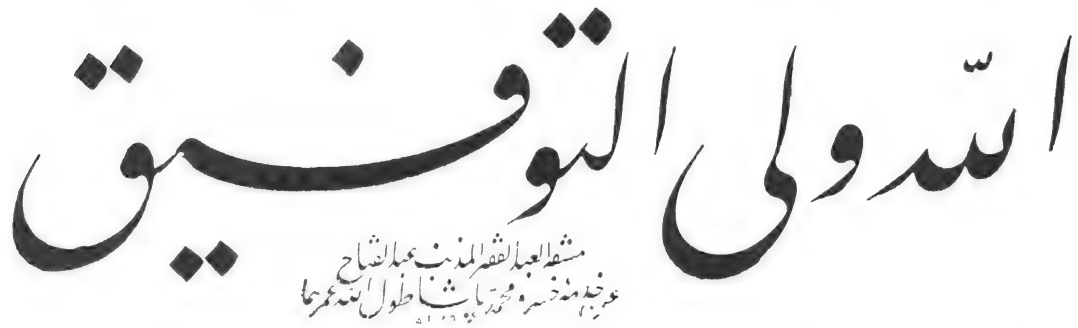 الله ولى التوفيق
مشقه العبد الفقير المذنب عبد الفتاح
خسرو محمد پاشا طول الله عمرهما